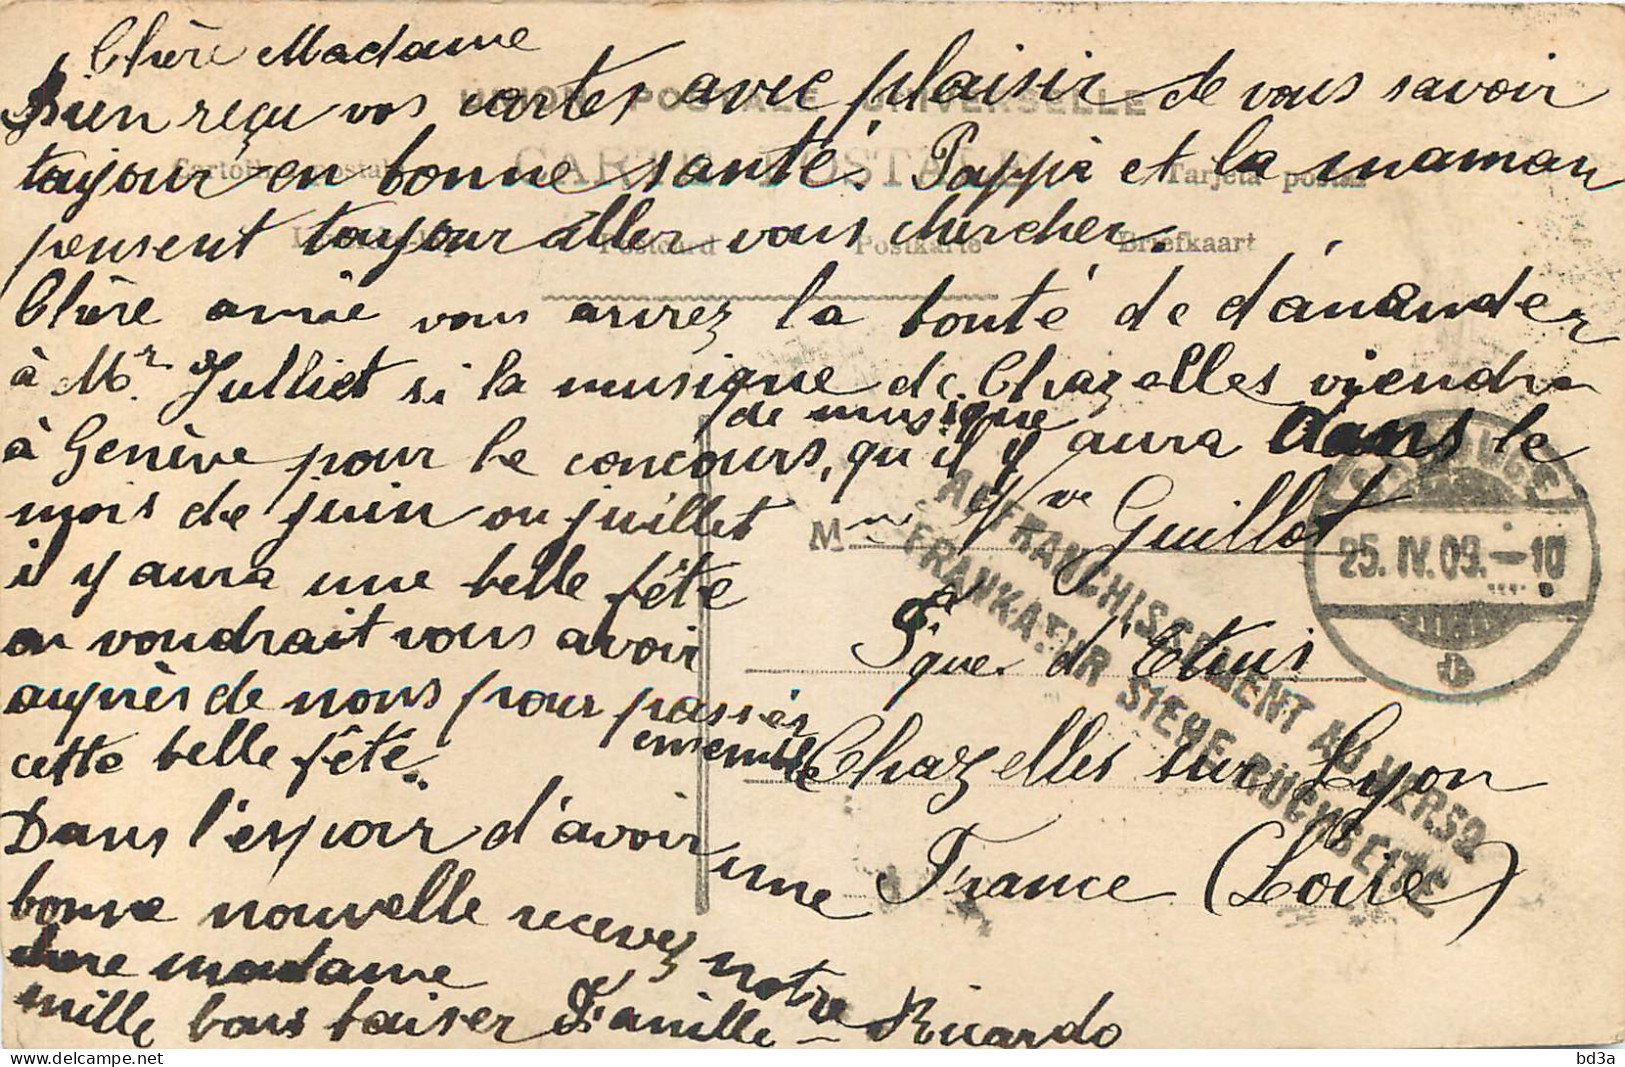 Chère Madame
Bien reçu vos cartes avec plaisir de vous savoir
toujour en bonne santé. Pappi et la maman
pensent toujour aller vous chercher.
Chère amie vous aurez la bonté de demander
à Mr. Julliet si la musique de Chazelles viendra
à Genève pour le concours, de musique qu'il y aura dans le
mois de juin ou juillet
il y aura une belle fête
on voudrait vous avoir
auprès de nous pour passer
cette belle fête. ensemble
Dans l'espoir d'avoir une
bonne nouvelle recevez
chere madame notre
mille bons baiser Famille - Ricardo
UNION POSTALE UNIVERSELLE
CARTE POSTALE
Postcard Postkarte Briefkaart
Tarjeta postal
Mme Vve Guillot
Fque d'Etuis
Chazelles sur Lyon
France (Loire)
AFFRANCHISSEMENT AU VERSO
FRANKATUR SIEHE RÜCKSEITE
25. IV. 09. - 10
bd3a
delcampe.net